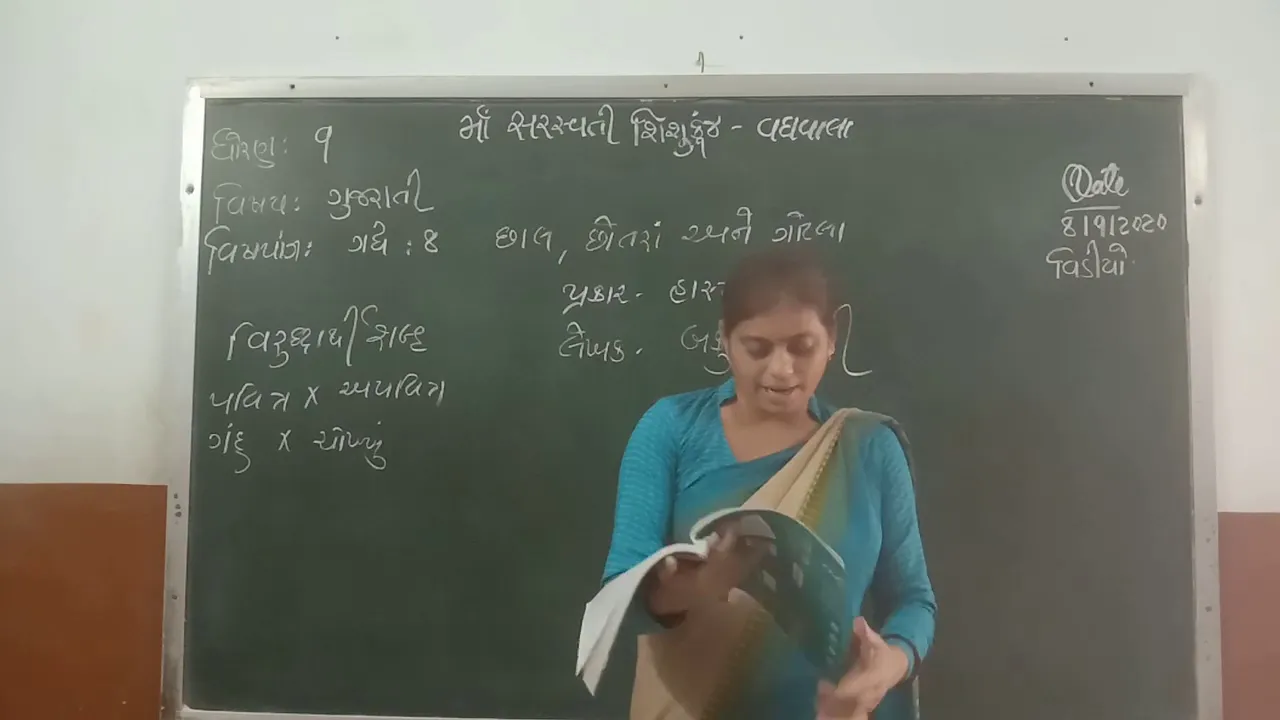 માઁ સરસ્વતી શિશુકુંજ - વઘવાલા
ધોરણ: ૧
વિષય: ગુજરાતી
વિષયાંગ: ગદ્ય : ૪ છાલ, છોતરાં અને ગોટલા
પ્રકાર -
લેખક -
Date
8/9/2020
વિડીયો
વિરુદ્ધાર્થી શબ્દ
પવિત્ર x અપવિત્ર
ગંદુ x ચોખ્ખું